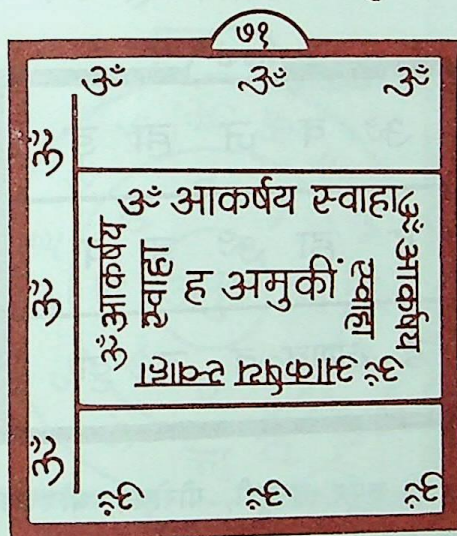 ७१
ॐ ॐ ॐ
ॐ
ॐ
ॐ
ॐ आकर्षय स्वाहा
ॐ आकर्षय
स्वाहा
ह अमुकीं
ॐ आकर्षय
स्वाहा
ॐ आकर्षय स्वाहा
ॐ ॐ ॐ